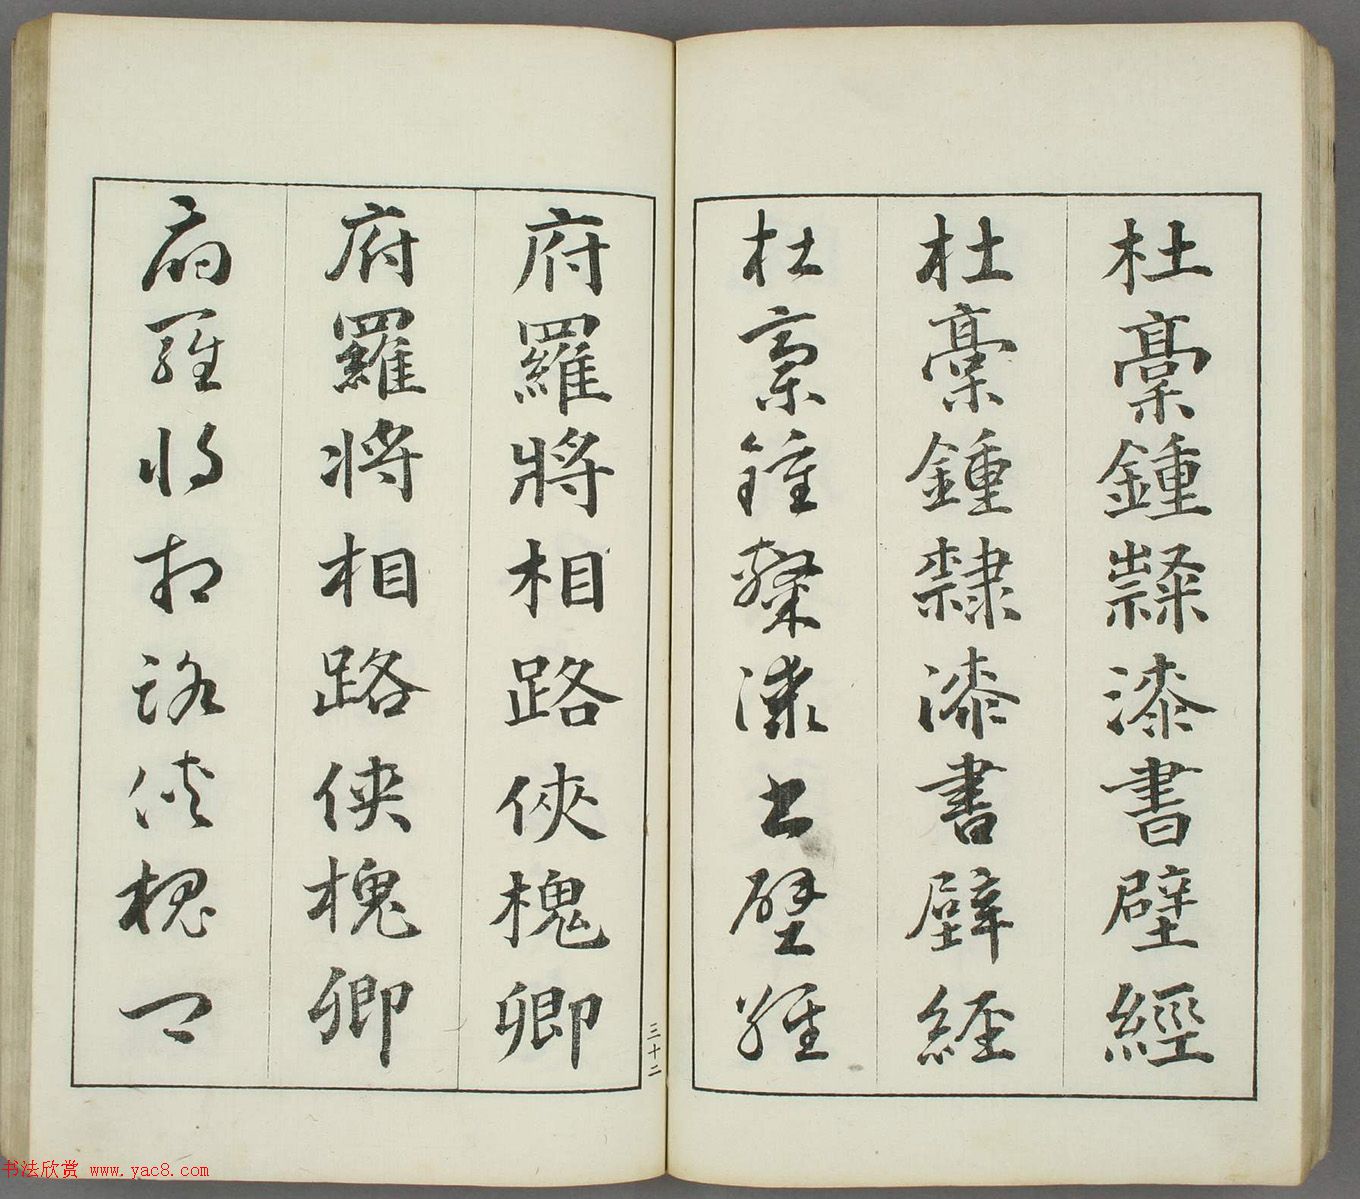 杜稾鍾隸漆書壁經
杜稾鍾隸漆書壁經
杜稾鍾隸漆书壁經
府羅將相路俠槐卿
府羅将相路俠槐卿
府羅将相路俠槐卿
三十二
书法欣赏 www.yac8.com